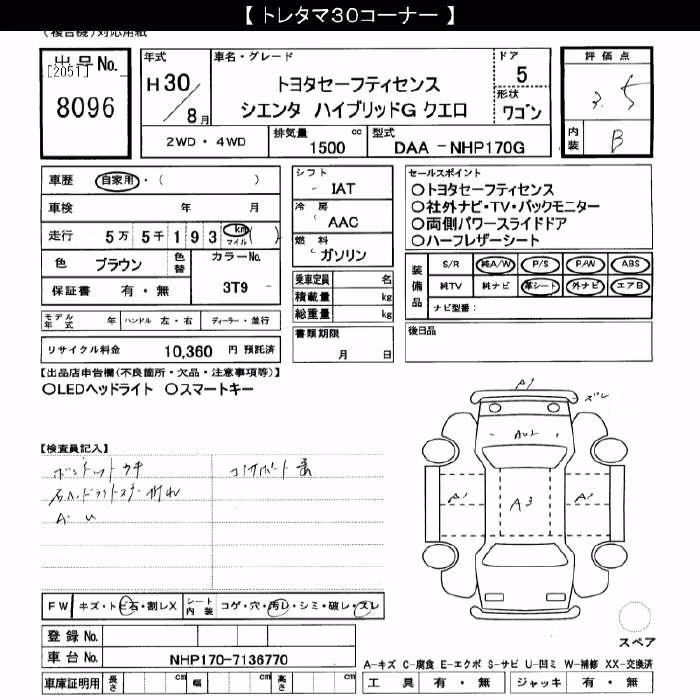 【 トレタマ30コーナー 】
(複合機)対応用紙
出品No.
[2051]
8096
年式
H 30 / 8月
車名・グレード
トヨタセーフティセンス
シエンタ ハイブリッドG クエロ
ドア
5
形状
ワゴン
2WD・4WD
排気量 1500 cc
型式 DAA - NHP170G
評価点
3.5
内装 B
車歴 自家用・( )
車検 年 月
走行 5万 5千 1 9 3 km マイル ( )
色 ブラウン 色替 カラーNo. 3T9 -
保証書 有・無
モデル年式 年 ハンドル 左・右 ディーラー・並行
リサイクル料金 10,360 円 預託済
シフト
IAT
冷房
AAC
燃料
ガソリン
乗車定員 名
積載量 kg
総重量 kg
書類期限
月 日
セールスポイント
○トヨタセーフティセンス
○社外ナビ・TV・バックモニター
○両側パワースライドドア
○ハーフレザーシート
装備品
S/R 純A/W P/S P/W ABS
純TV 純ナビ 革シート 外ナビ エアB
ナビ型番:
後日品
【出品店申告欄(不良箇所・欠品・注意事項等)】
○LEDヘッドライト ○スマートキー
【検査員記入】
A1
ズレ
AU2
A1
A3
A1
FW キズ・トビ石・割レX
シート内装 コゲ・穴・汚レ・シミ・破レ・スレ
登録No.
車台No. NHP170-7136770
車庫証明用 長さ cm 幅 cm 高さ cm
スペア
A-キズ C-腐食 E-エクボ S-サビ U-凹ミ W-補修 XX-交換済
工具 有・無 ジャッキ 有・無